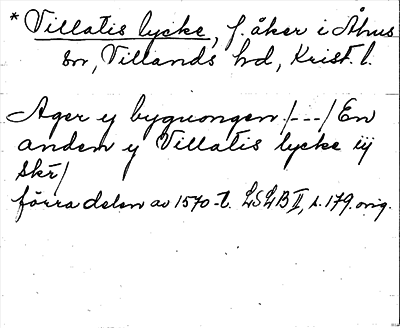 * Villatis lycke, f. åker i Åhus
sn, Villands hd, Krist. l.
Ager y bygvongen /---/ En
anden y Villatis lycke iij
skr/
förra delen av 1570-t. LSLB II, s. 179. orig.